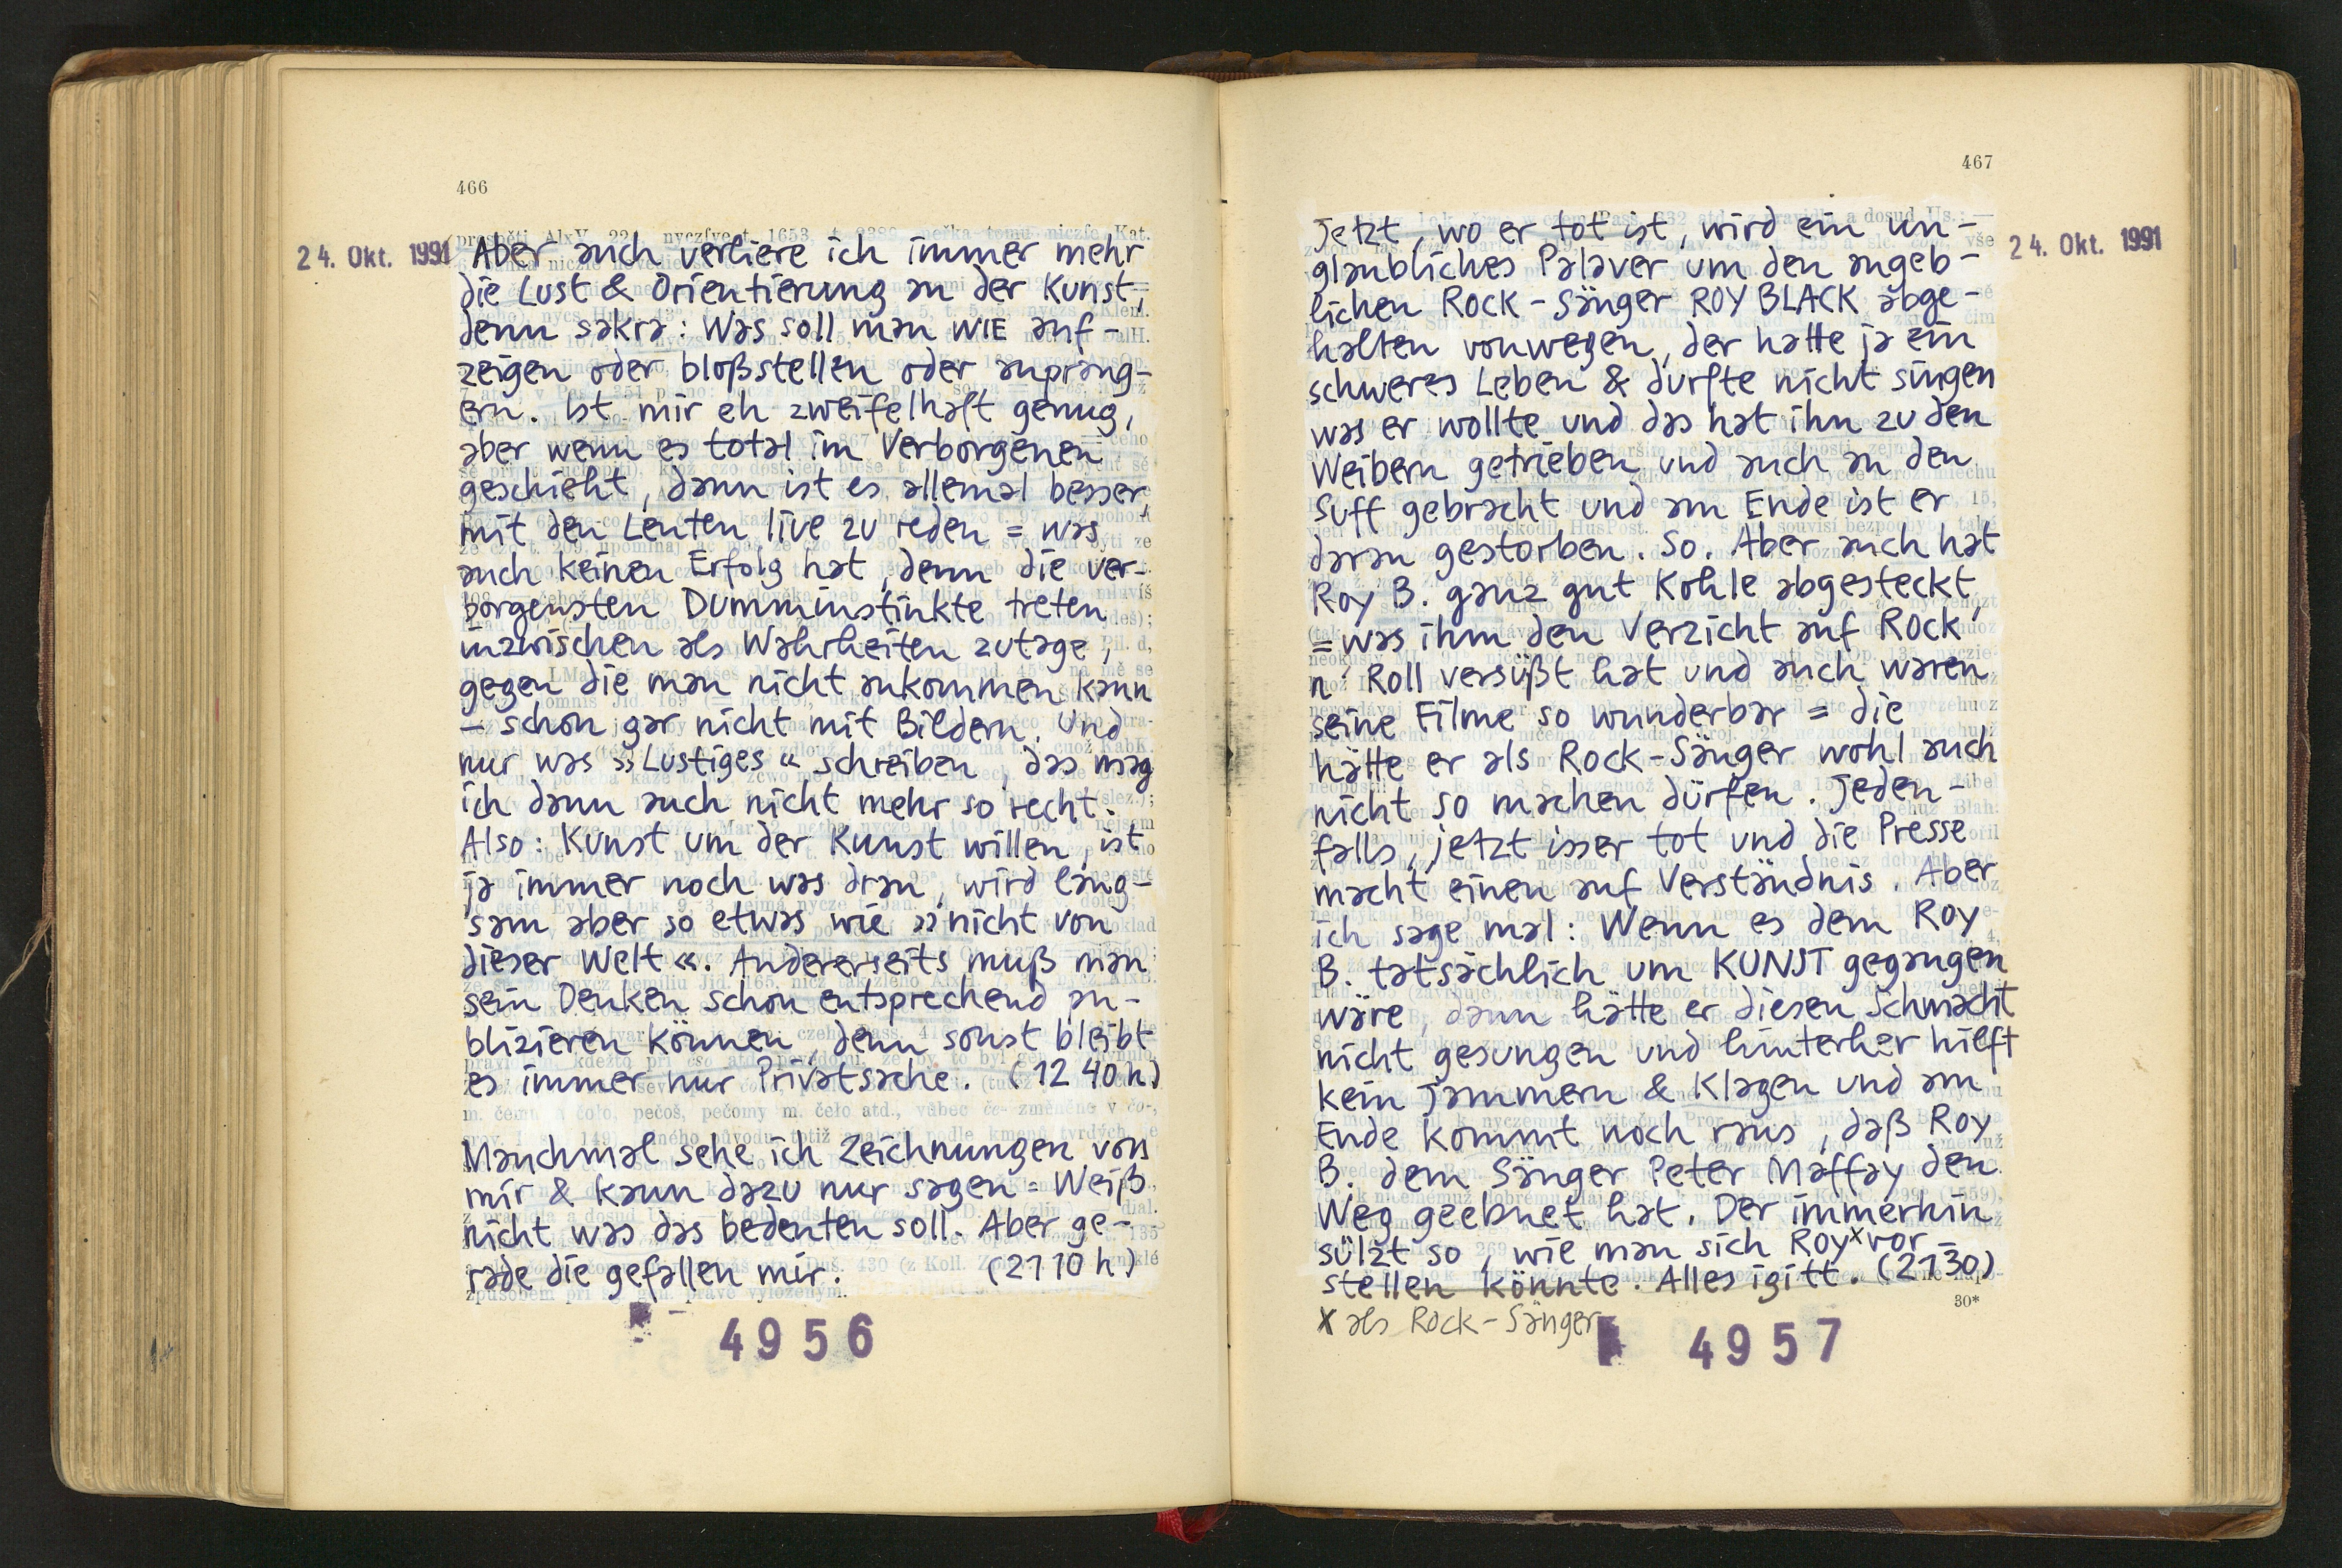 466
24. Okt. 1991
Aber auch verliere ich immer mehr
die Lust & Orientierung an der Kunst,
denn sakra: Was soll man WIE auf-
zeigen oder bloßstellen oder anprang-
ern. Ist mir eh zweifelhaft genug,
aber wenn es total im Verborgenen
geschieht, dann ist es allemal besser,
mit den Leuten live zu reden = was
auch keinen Erfolg hat, denn die ver-
borgensten Dumminstinkte treten
inzwischen als Wahrheiten zutage,
gegen die man nicht ankommen kann
– schon gar nicht mit Bildern. Und
nur was »Lustiges« schreiben, das mag
ich dann auch nicht mehr so recht.
Also: Kunst um der Kunst willen, ist
ja immer noch was dran, wird lang-
sam aber so etwas wie »nicht von
dieser Welt«. Andererseits muß man
sein Denken schon entsprechend pu-
blizieren können, denn sonst bleibt
es immer nur Privatsache. (12 40 h)
Manchmal sehe ich Zeichnungen von
mir & kann dazu nur sagen = Weiß
nicht was das bedeuten soll. Aber ge-
rade die gefallen mir. (21 10 h)
4956
467
24. Okt. 1991
Jetzt, wo er tot ist, wird ein un-
glaubliches Palaver um den angeb-
lichen Rock-Sänger ROY BLACK abge-
halten vonwegen, der hatte ja ein
schweres Leben & durfte nicht singen
was er wollte und das hat ihn zu den
Weibern getrieben und auch an den
Suff gebracht und am Ende ist er
daran gestorben. So. Aber auch hat
Roy B. ganz gut Kohle abgesteckt,
= was ihm den Verzicht auf Rock'
n' Roll versüßt hat und auch waren
seine Filme so wunderbar = die
hätte er als Rock-Sänger wohl auch
nicht so machen dürfen. Jeden-
falls, jetzt isser tot und die Presse
macht einen auf Verständnis. Aber
ich sage mal: Wenn es dem Roy
B. tatsächlich um KUNST gegangen
wäre, dann hätte er diesen Schmacht
nicht gesungen und hinterher hilft
kein Jammern & Klagen und am
Ende kommt noch raus, daß Roy
B. dem Sänger Peter Maffay den
Weg geebnet hat. Der immerhin
sülzt so, wie man sich Roy x vor-
stellen könnte. Alles igitt. (21 30)
30*
x als Rock-Sänger
4957